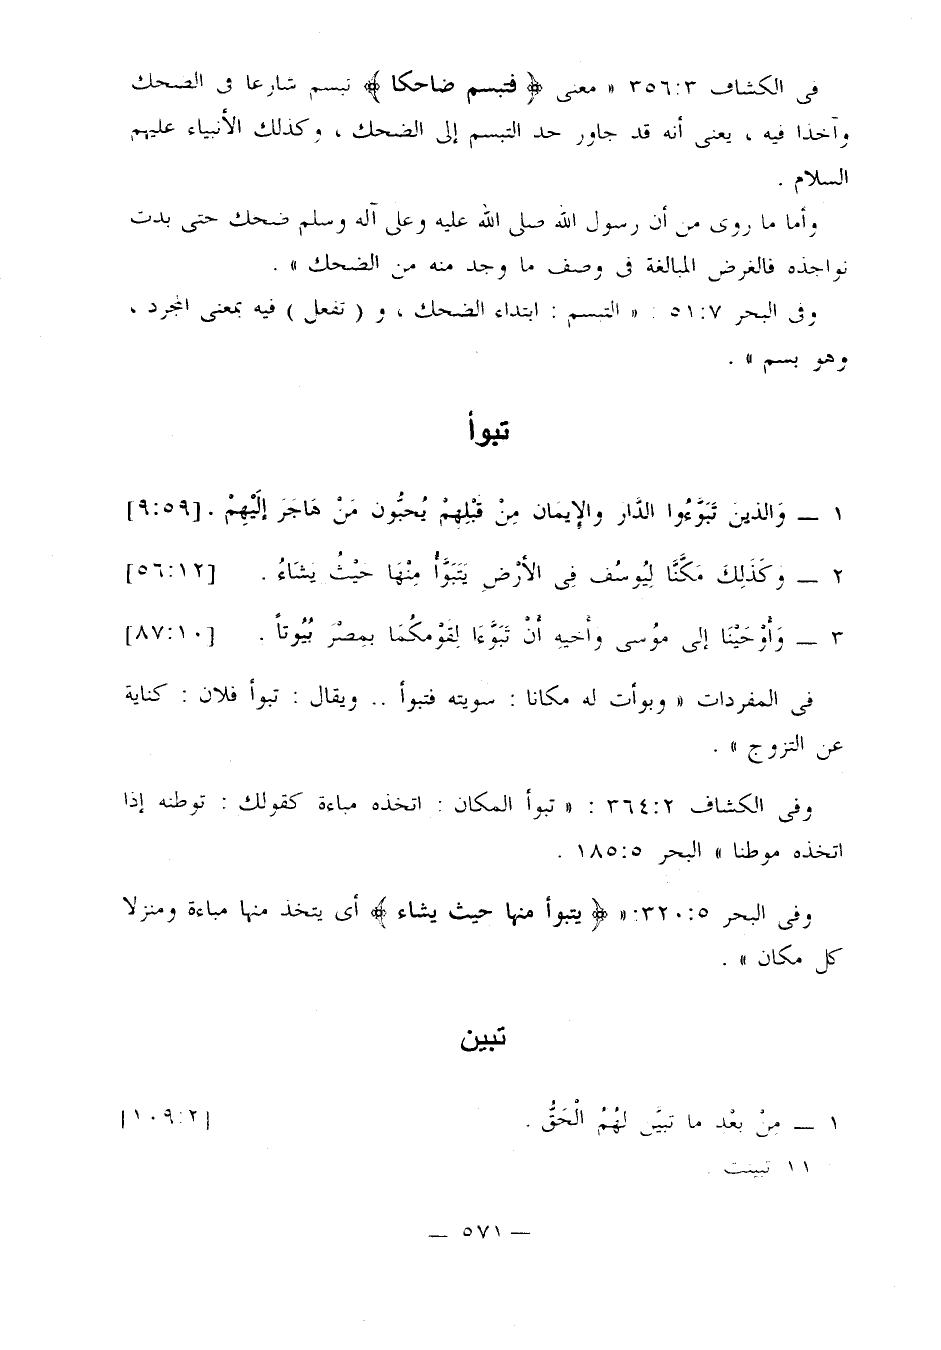 فى الكشاف ٣:٣٥٦ « معنى ﴿ فتبسم ضاحكا ﴾ تبسم شارعا فى الضحك
وآخذا فيه ، يعنى أنه قد جاوز حد التبسم إلى الضحك ، وكذلك الأنبياء عليهم
السلام .
وأما ما روى من أن رسول الله صلى الله عليه وعلى آله وسلم ضحك حتى بدت
نواجذه فالغرض المبالغة فى وصف ما وجد منه من الضحك » .
وفى البحر ٧:٥١ : « التبسم : ابتداء الضحك ، و ( تفعل ) فيه بمعنى المجرد ،
وهو بسم » .
تبوأ
١ — وَالذينَ تَبَوَّءُوا الدَّار والإيمَان مِنْ قَبْلِهِمْ يُحبُّون مَنْ هَاجَرَ إلَيْهِمْ . [٩:٥٩]
٢ — وكَذَلِكَ مَكَّنَّا لِيُوسُف فِى الأرْضِ يَتَبَوَّأُ مِنْهَا حَيْثُ يشَاءُ . [٥٦:١٢]
٣ — وَأَوْحَيْنَا إلى مُوسى وأخيهِ أنْ تَبَوَّءَا لِقَوْمكُمَا بمِصْرَ بُيُوتاً . [٨٧:١٠]
فى المفردات « وبوأت له مكانا : سويته فتبوأ .. ويقال : تبوأ فلان : كناية
عن التزوج » .
وفى الكشاف ٢:٣٦٤ : « تبوأ المكان : اتخذه مباءة كقولك : توطنه إذا
اتخذه موطنا » البحر ٥:١٨٥ .
وفى البحر ٥:٣٢٠: « ﴿ يتبوأ منها حيث يشاء ﴾ أى يتخذ منها مباءة ومنزلا
كل مكان » .
تبين
١ — مِنْ بعْد ما تبيَّن لهُمُ الْحَقُّ . [١٠٩:٢]
١١ تبينت .
— ٥٧١ —